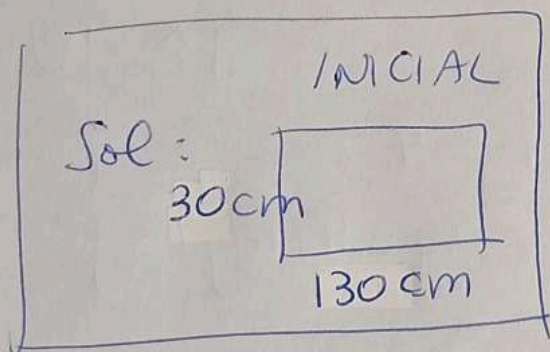 INICIAL
Sol:
30cm
130 cm